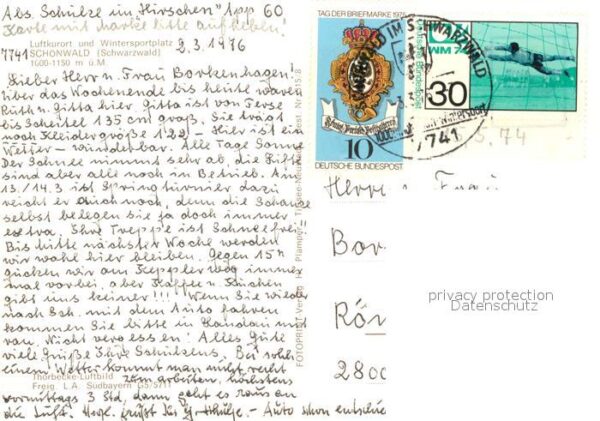 Abs. Schulze im "Hirschen" App 60
Karte mit Marke bitte aufheben!
Luftkurort und Wintersportplatz
7741 SCHONWALD (Schwarzwald) 9.3.1976
1000-1150 m ü.M.
Lieber Herr u. Frau Borkenhagen!
Über das Wochenende bis heute waren
Ruth u. Gitta hier. Gitta ist von Ferse
bis Scheitel 135 cm groß. Sie trägt
noch Kleidergröße 122! - Hier ist ein
Wetter - wunderbar. Alle Tage Sonne
Der Schnee nimmt sehr ab, die Lifte
sind aber alle noch in Betrieb. Am
13./14.3 ist Springturnier dazu
reicht er auch noch, denn die Schanze
selbst belegen sie ja doch immer
extra. Ihre Treppe ist Schneefrei!
Bis Mitte nächster Woche werden
wir wohl hier bleiben. Gegen 15 h
gucken wir am Keppler Weg immer
mal vorbei, aber Kaffee u. Kuchen
gibt uns keiner!!! Wenn Sie wieder
nach Sch. mit dem Auto fahren
kommen Sie bitte in Landau mit
ran. Nicht vergessen! Alles Gute
viele Grüße Ihre Schulzens, Bei solch
einem Wetter kommt man nicht recht
Thorbecke-Luftbild
zum arbeiten, höchstens
Freig. L.A. Südbayern G5/5711
vormittags 3 Std, dann geht es raus an
die Luft. Herzl. grüßt Sie
Auto schon
FOTOPRINT-Verlag H. Plamper, Titisee-Neustadt, Best. Nr. 315/8
TAG DER BRIEFMARKE 1975
10
DEUTSCHE BUNDESPOST
WM 74
30
SCHONWALD IM SCHWARZWALD
7741
5.74
Herrn u. Frau
Bor
Rön
2800
privacy protection
Datenschutz